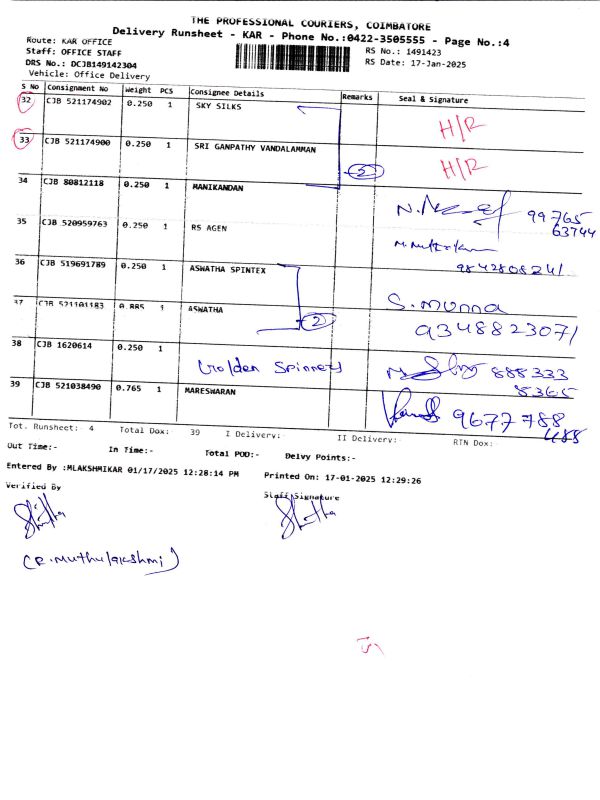 THE PROFESSIONAL COURIERS, COIMBATORE
Delivery Runsheet - KAR - Phone No.:0422-3505555 - Page No.:4
Route: KAR OFFICE RS No.: 1491423
Staff: OFFICE STAFF RS Date: 17-Jan-2025
DRS No.: DCJB149142304
Vehicle: Office Delivery
S No Consignment No Weight PCS Consignee Details Remarks Seal & Signature
32 CJB 521174902 0.250 1 SKY SILKS H/R
33 CJB 521174900 0.250 1 SRI GANPATHY VANDALAMMAN H/R
34 CJB 80812118 0.250 1 MANIKANDAN 99765
63744
35 CJB 520959763 0.250 1 RS AGEN
9842808241
36 CJB 519691789 0.250 1 ASWATHA SPINTEX S. Munna
37 CJB 521101183 0.885 1 ASWATHA 2 9348823071
38 CJB 1620614 0.250 1 Golden Spinners 888333
8365
39 CJB 521038490 0.765 1 MARESWARAN 9677788
488
Tot. Runsheet: 4 Total Dox: 39 I Delivery:- II Delivery:- RTN Dox:
Out Time:- In Time:- Total POD:- Delvy Points:-
Entered By :MLAKSHMIKAR 01/17/2025 12:28:14 PM Printed On: 17-01-2025 12:29:26
Verified By Staff Signature
(R. Muthulakshmi)